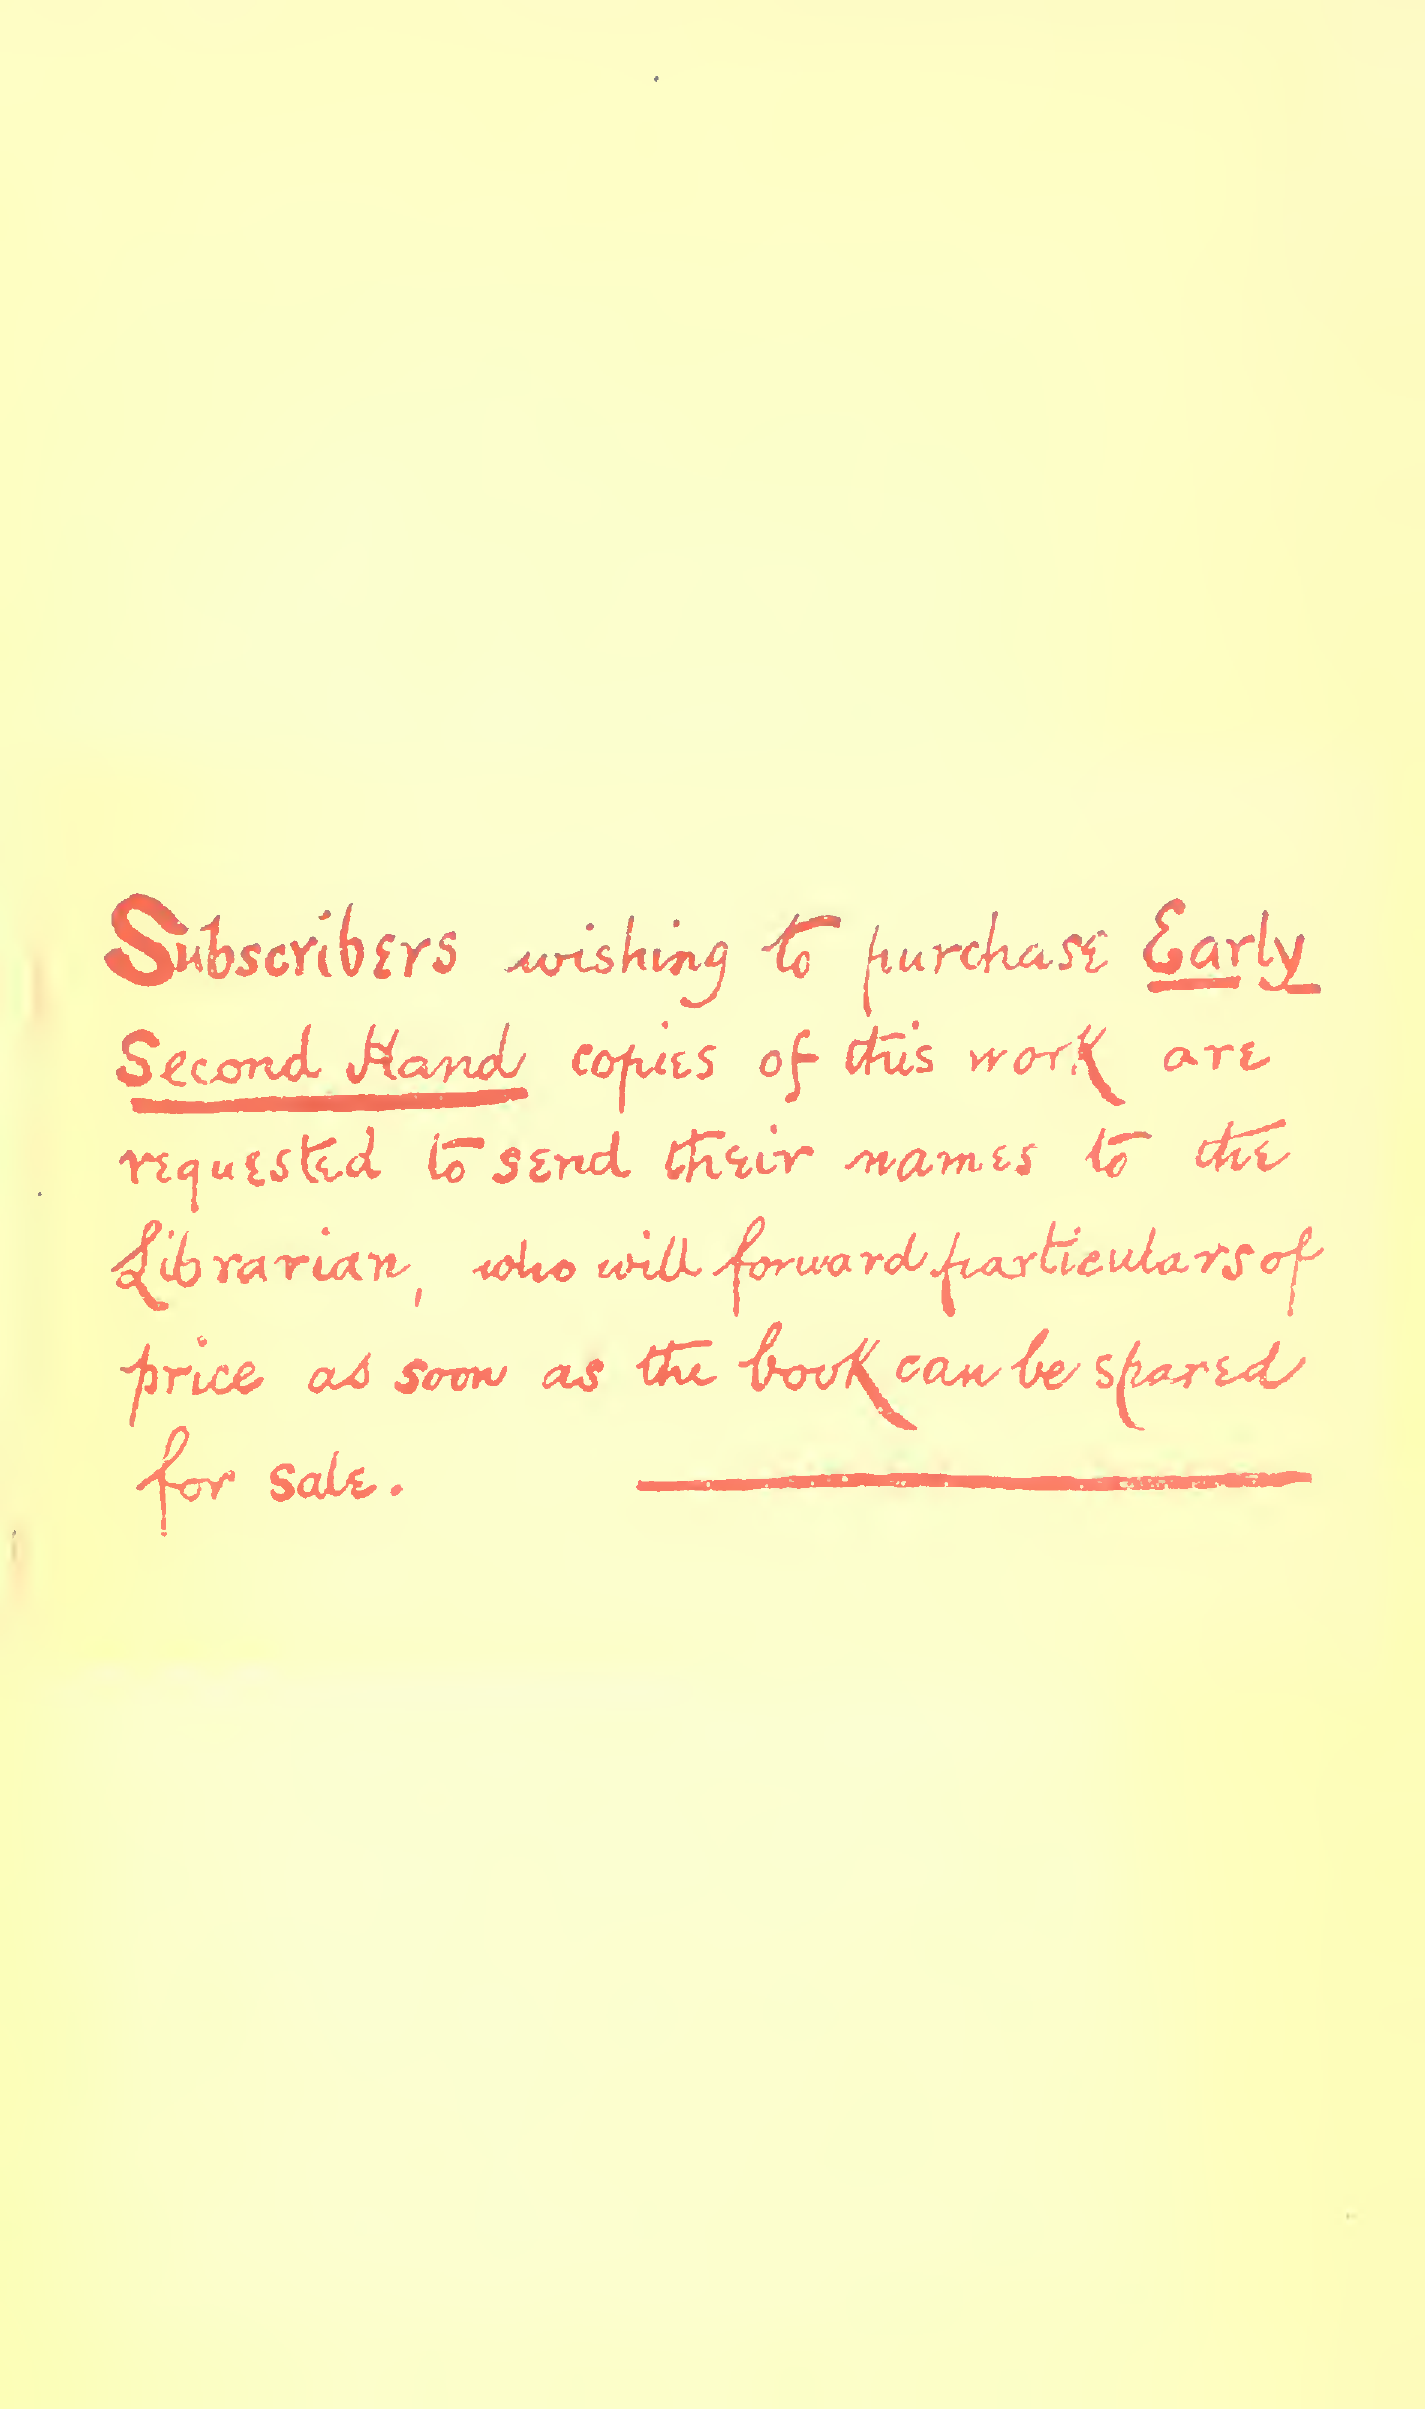 Subscribers wishing to purchase Early
Second Hand copies of this work are
requested to send their names to the
Librarian, who will forward particulars of
price as soon as the book can be spared
for sale.